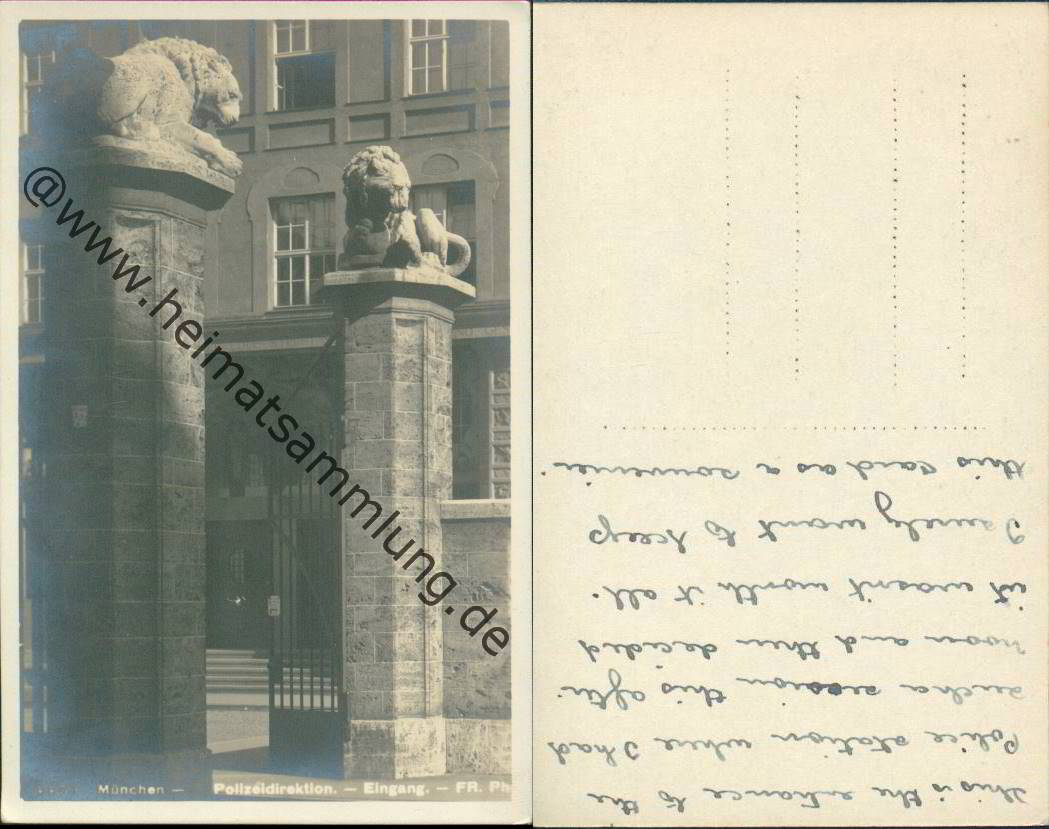 @www.heimatsammlung.de
München — Polizeidirektion. — Eingang. — FR. Ph
This is the entrance to the
Police station where I had
such a session this after
noon and then decided
it wasn't worth it all.
I surely want to keep
this card as a souvenier.